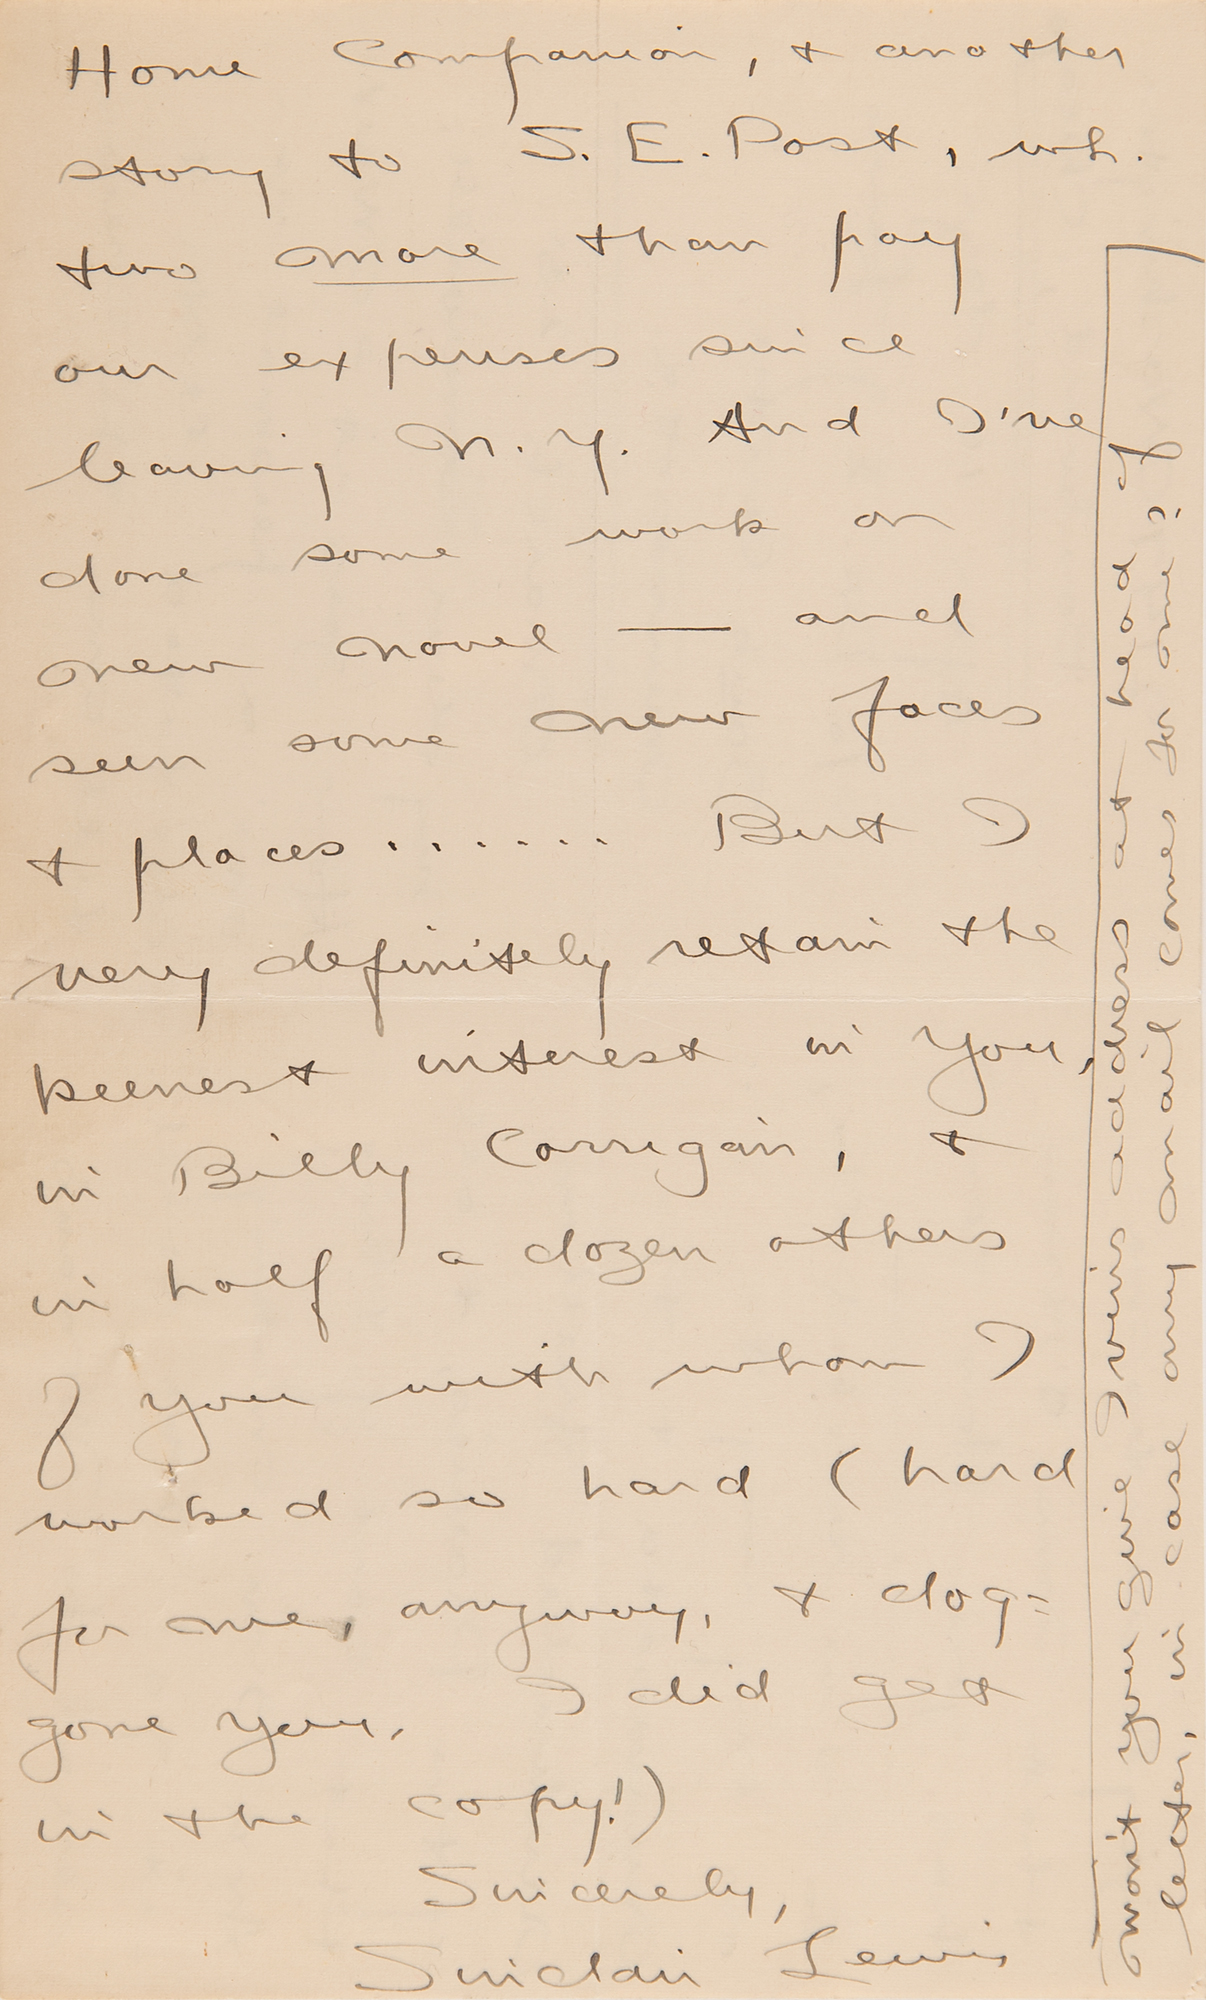 Home Companion, & another
story to S. E. Post, wh.
two more than pay
our expenses since
leaving N. Y. And I've
done some work on
new novel — and
seen some new faces
& places . . . . . . But I
very definitely retain the
keenest interest in you,
in Billy Corrigan, &
in half a dozen others
of you with whom I
worked so hard (hard
for me, anyway, & dog=
gone you, I did get
in the copy!)
Sincerely,
Sinclair Lewis
Won't you give Irvin's address at head of
letter, in case any mail comes for me?